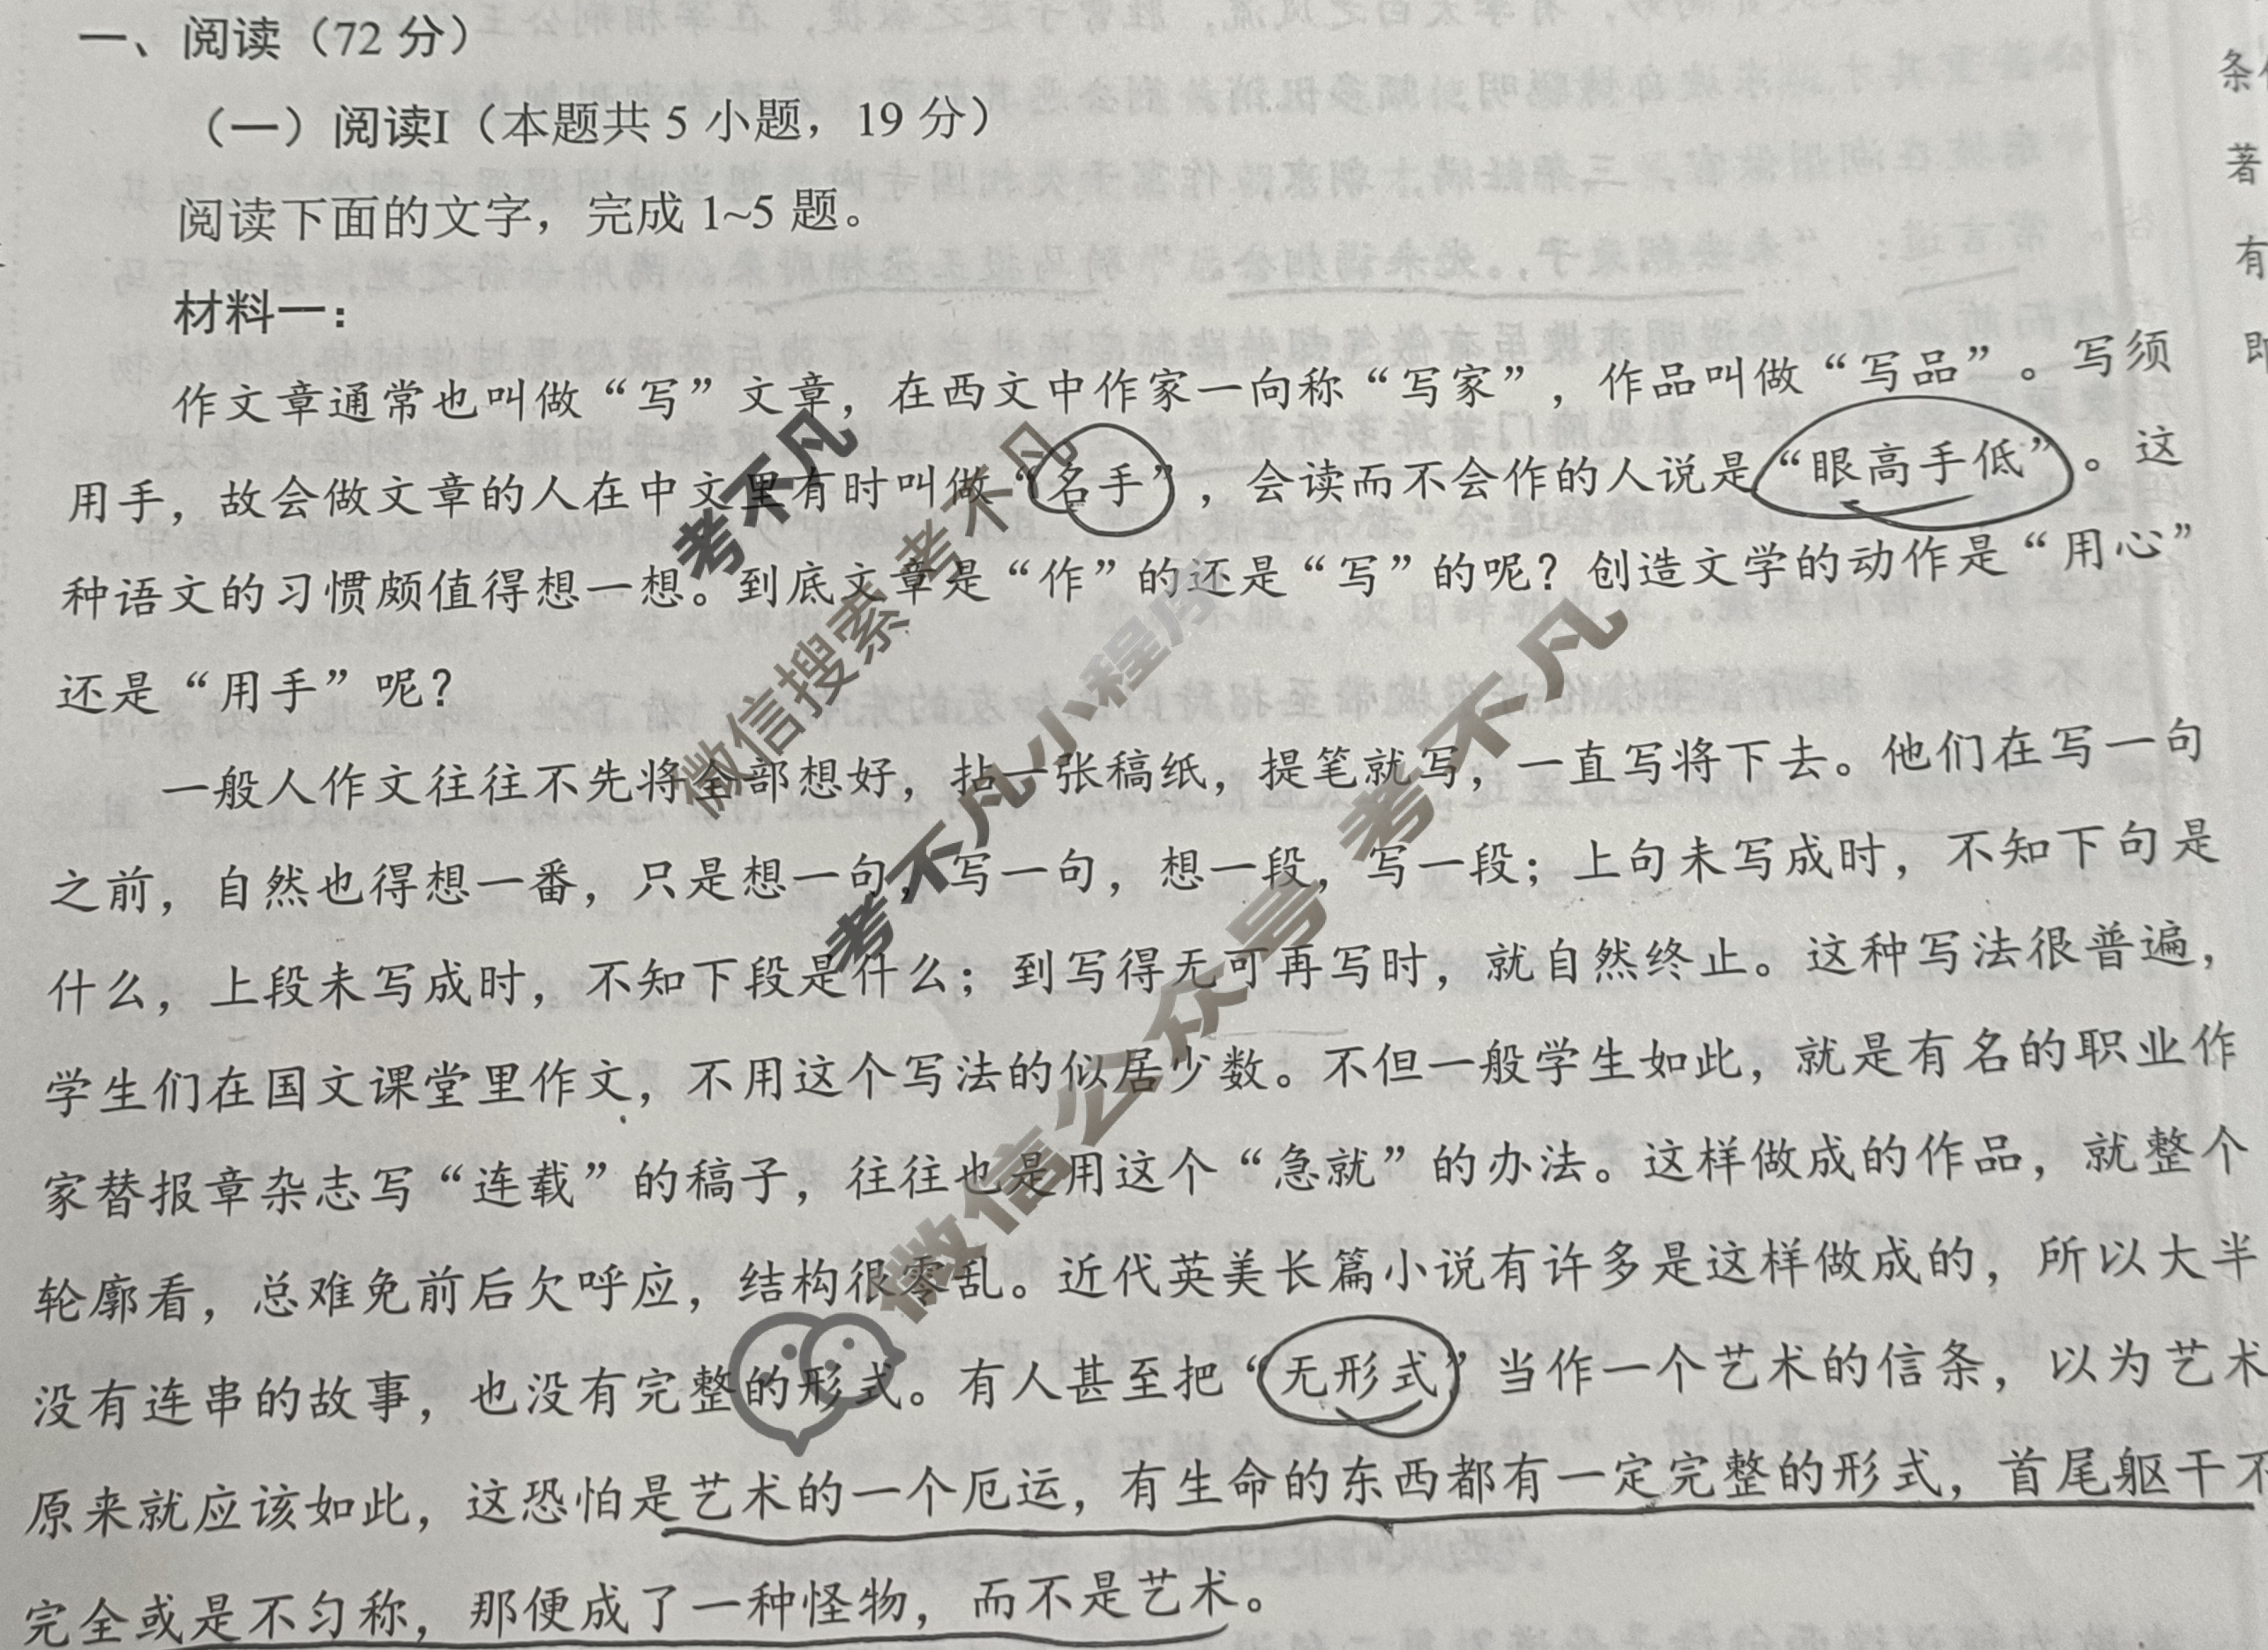 一、阅读（72 分）
（一）阅读I（本题共 5 小题，19 分）
阅读下面的文字，完成 1~5 题。
材料一：
作文章通常也叫做“写”文章，在西文中作家一向称“写家”，作品叫做“写品”。写须
用手，故会做文章的人在中文里有时叫做“名手”，会读而不会作的人说是“眼高手低”。这
种语文的习惯颇值得想一想。到底文章是“作”的还是“写”的呢？创造文学的动作是“用心”
还是“用手”呢？
一般人作文往往不先将全部想好，拈一张稿纸，提笔就写，一直写将下去。他们在写一句
之前，自然也得想一番，只是想一句，写一句，想一段，写一段；上句未写成时，不知下句是
什么，上段未写成时，不知下段是什么；到写得无可再写时，就自然终止。这种写法很普遍，
学生们在国文课堂里作文，不用这个写法的似居少数。不但一般学生如此，就是有名的职业作
家替报章杂志写“连载”的稿子，往往也是用这个“急就”的办法。这样做成的作品，就整个
轮廓看，总难免前后欠呼应，结构很零乱。近代英美长篇小说有许多是这样做成的，所以大半
没有连串的故事，也没有完整的形式。有人甚至把“无形式”当作一个艺术的信条，以为艺术
原来就应该如此，这恐怕是艺术的一个厄运，有生命的东西都有一定完整的形式，首尾躯干不
完全或是不匀称，那便成了一种怪物，而不是艺术。
条
著
有
即
考不凡
微信搜索 考不凡
考不凡小程序
微信公众号 考不凡